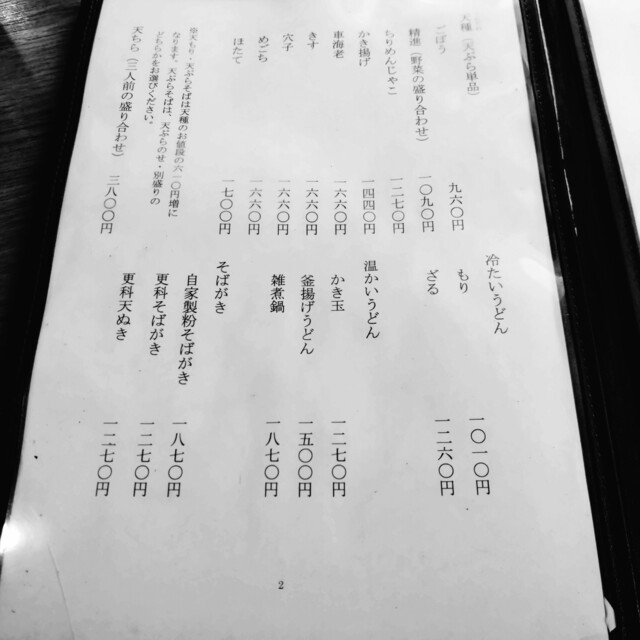 天種（天ぷら単品）
ごぼう 九六〇円
精進（野菜の盛り合わせ） 一〇九〇円
ちりめんじゃこ 一二七〇円
かき揚げ 一四四〇円
車海老 一六六〇円
きす 一六六〇円
穴子 一六六〇円
めごち 一六六〇円
ほたて 一七〇〇円
天もり・天ぷらそばは天種のお値段の六一〇円増に
なります。天ぷらそばは、天ぷらのせ・別盛りの
どちらかをお選びください。
天ちら（三人前の盛り合わせ） 三八〇〇円
冷たいうどん
もり 一〇一〇円
ざる 一二六〇円
温かいうどん
かき玉 一二七〇円
釜揚げうどん 一五〇〇円
雑煮鍋 一八七〇円
そばがき
自家製粉そばがき 一八七〇円
更科そばがき 一二七〇円
更科天ぬき 一二七〇円
2